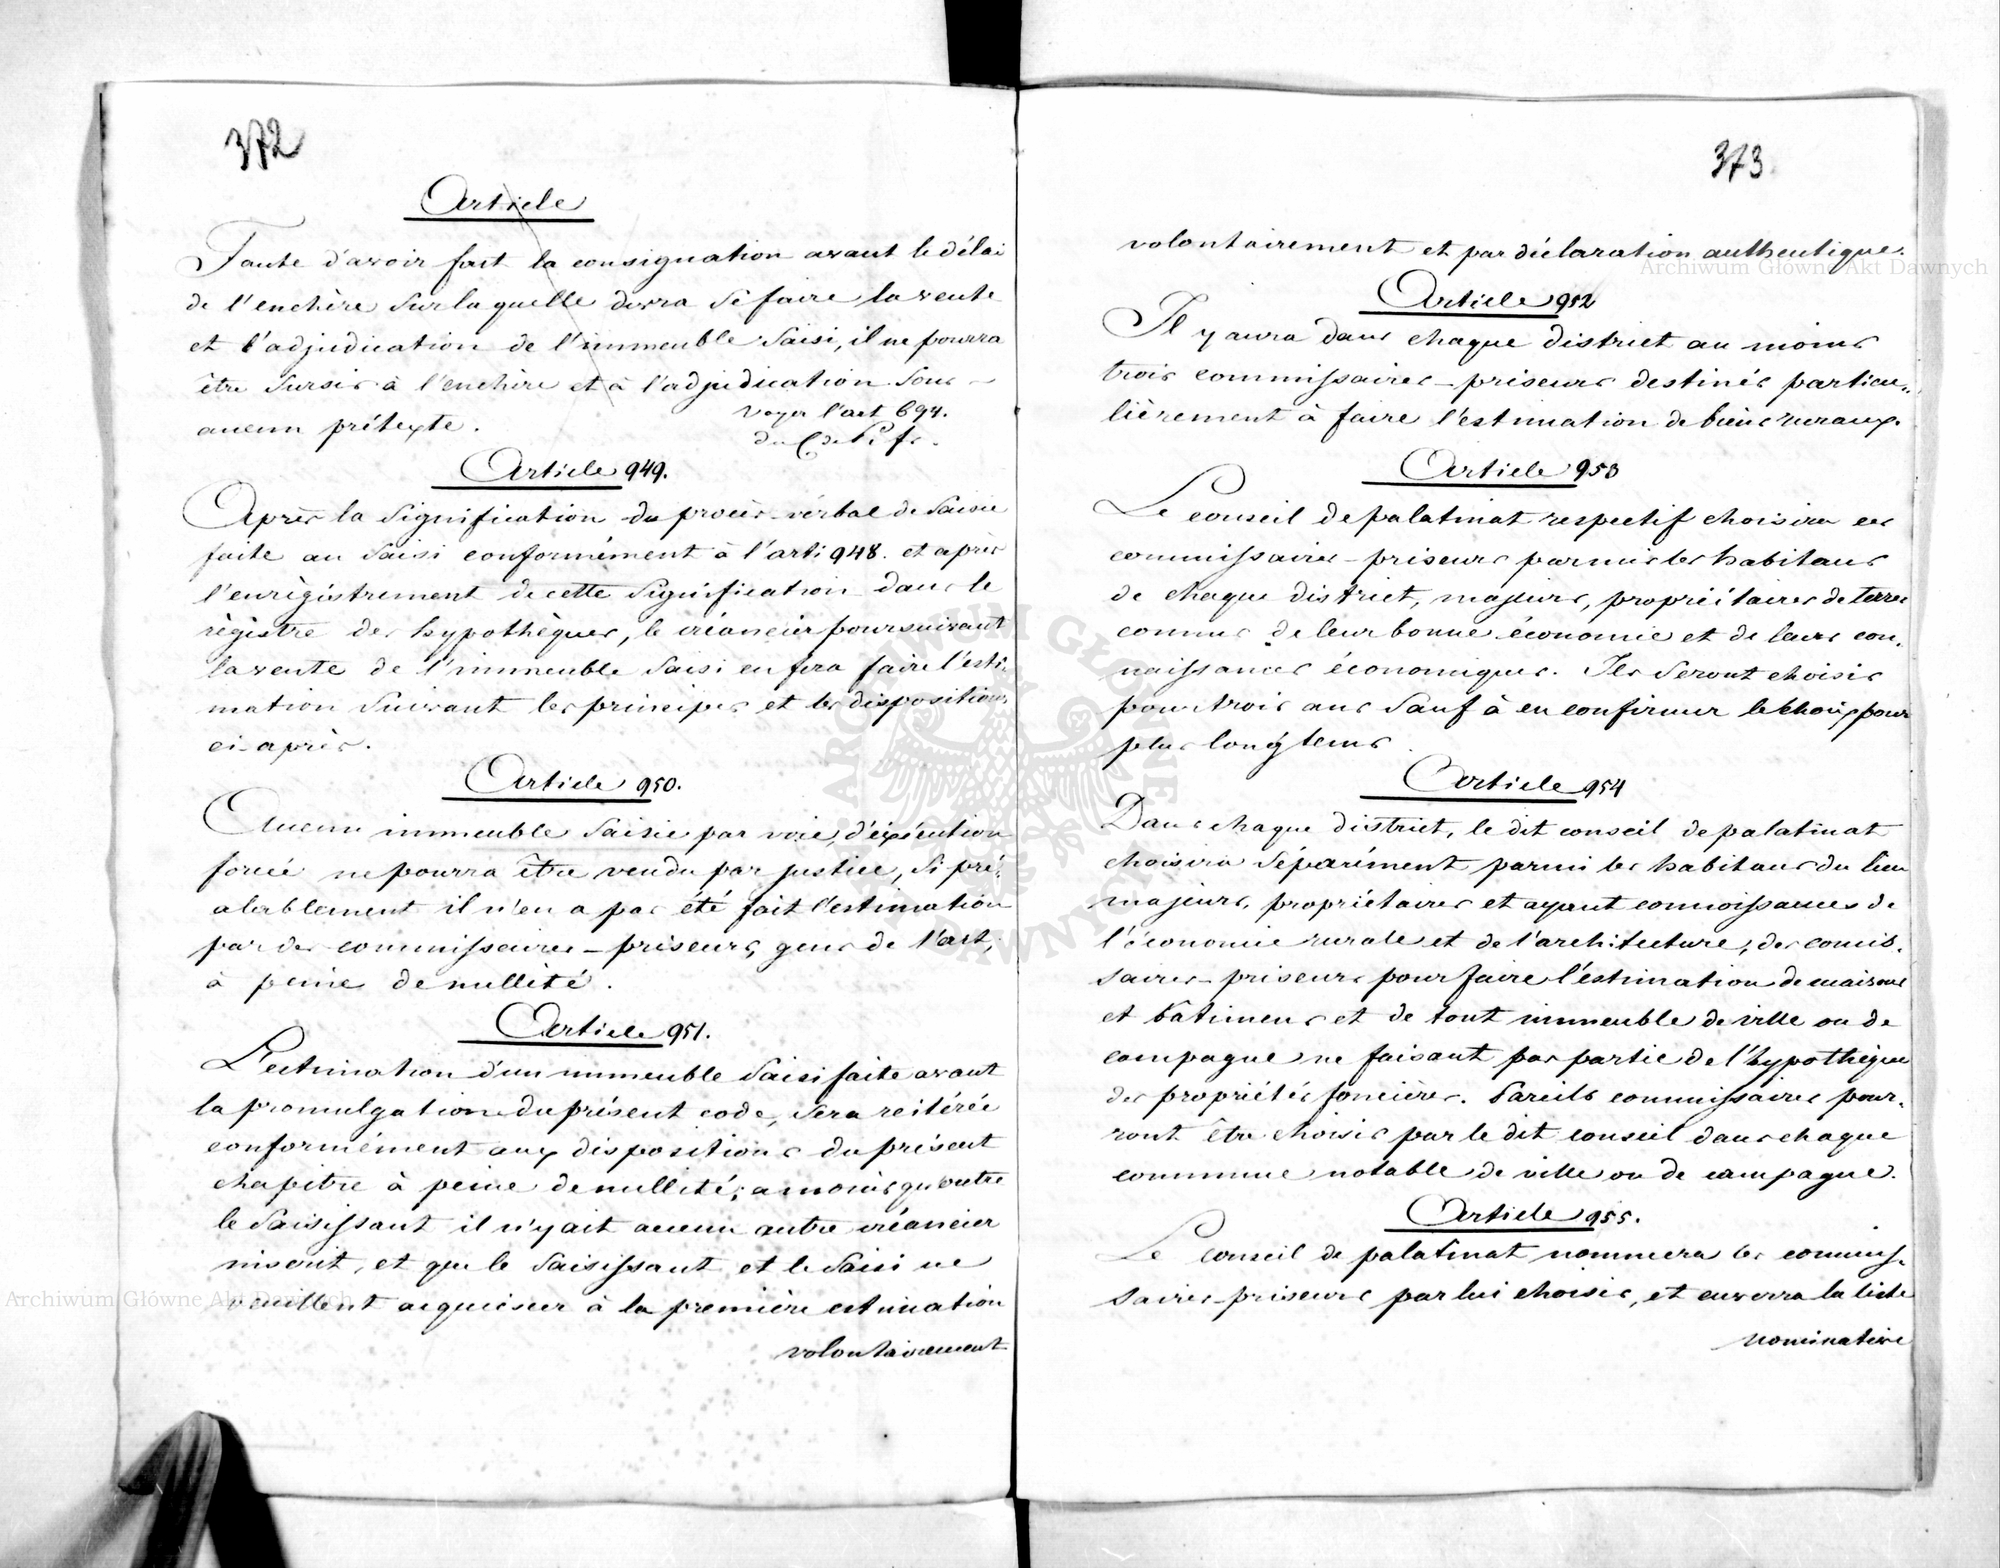 372
Article
Faute d'avoir fait la consignation avant le délai
de l'enchère sur laquelle devra se faire la vente
et l'adjudication de l'immeuble saisi, il ne pourra
être sursis à l'enchère et à l'adjudication sous
aucun prétexte.
Voyez l'art 694.
du C. de P. fr.
Article 949.
Après la signification du procès-vérbal de saisie
faite au saisi conformément à l'arti 948. et après
l'enrégistrement de cette signification dans le
régistre des hypothèques, le créancier poursuivant
la vente de l'immeuble saisi en fera faire l'esti-
mation suivant les principes et les dispositions
ci-après.
Article 950.
Aucun immeuble saisie par voie d'éxécution
forcée ne pourra être vendu par justice, si pré-
alablement il n'en a pas été fait l'estimation
par des commissaires-priseurs, gens de l'art,
à peine de nullité.
Article 951.
L'estimation d'un immeuble saisi faite avant
la promulgation du présent code, sera reitérée
conformément aux dispositions du présent
chapitre à peine de nullité; a moins qu'outre
le saisissant il n'y ait aucun autre créancier
inscrit, et que le saisissant et le saisi ne
veuillent acquiescer à la première estimation
volontairement
373.
volontairement et par déclaration authentique.
Article 952
Il y aura dans chaque district au moins
trois commissaires-priseurs destinés particu-
lièrement à faire l'estimation de biens ruraux.
Article 953
Le conseil de palatinat respectif choisira ces
commissaires-priseurs parmis les habitans
de chaque district, majeurs, propriétaires de terres
connus de leur bonne économie et de leurs con-
naissances économiques. Ils seront choisis
pour trois ans sauf à en confirmer le choix pour
plus longtems.
Article 954
Dans chaque district, le dit conseil de palatinat
choisira séparément parmi les habitans du lieu
majeurs, propriétaires et ayant connoissances de
l'économie rurale et de l'architecture, des comis-
saires-priseurs pour faire l'éstimation de maisons
et bâtimens et de tout immeuble de ville ou de
campagne ne faisant pas partie de l'hypothèque
des propriétés foncières. Pareils commissaires pour-
ront être choisis par le dit conseil dans chaque
commune notable de ville ou de campagne.
Article 955.
Le conseil de palatinat nommera les commis-
saires-priseurs par lui choisis, et enverra la liste
nominative
Archiwum Główne Akt Dawnych
Archiwum Główne Akt Dawnych
ARCHIWUM GŁÓWNE AKT DAWNYCH